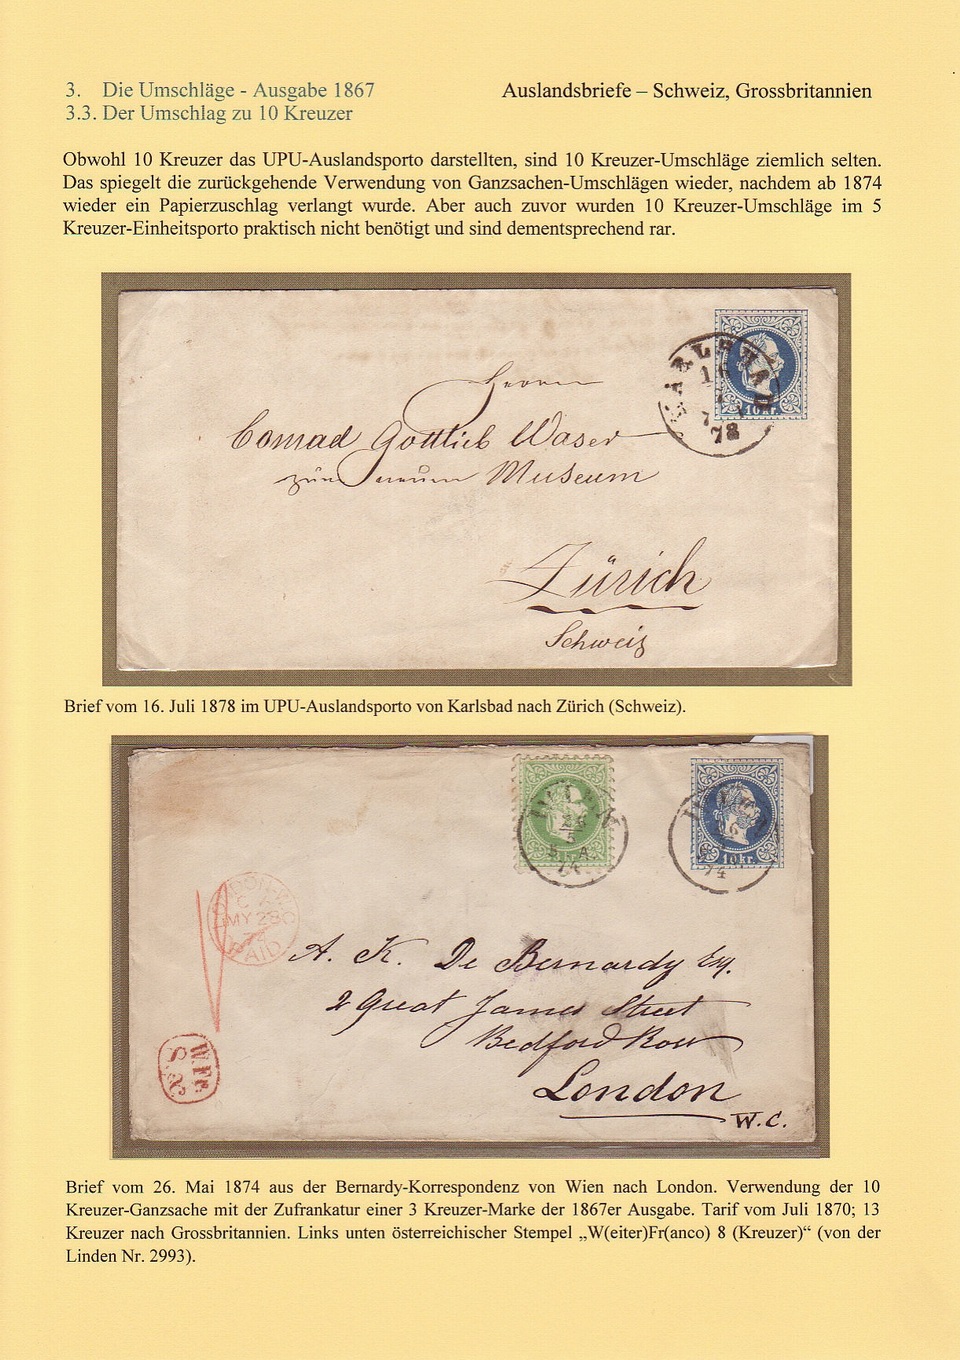 3. Die Umschläge - Ausgabe 1867
Auslandsbriefe – Schweiz, Grossbritannien
3.3. Der Umschlag zu 10 Kreuzer
Obwohl 10 Kreuzer das UPU-Auslandsporto darstellten, sind 10 Kreuzer-Umschläge ziemlich selten.
Das spiegelt die zurückgehende Verwendung von Ganzsachen-Umschlägen wieder, nachdem ab 1874
wieder ein Papierzuschlag verlangt wurde. Aber auch zuvor wurden 10 Kreuzer-Umschläge im 5
Kreuzer-Einheitsporto praktisch nicht benötigt und sind dementsprechend rar.
10 kr.
78
Herrn
Conrad Gottlieb Waser
zum neuen Museum
Zürich
Schweiz
Brief vom 16. Juli 1878 im UPU-Auslandsporto von Karlsbad nach Zürich (Schweiz).
WIEN
26
5
74
10 kr.
74
MY 28
PAID
A. K. De Bernardy Esq.
2 Great James Street
Bedford Row
London
W. C.
W.Fr.
8
Brief vom 26. Mai 1874 aus der Bernardy-Korrespondenz von Wien nach London. Verwendung der 10
Kreuzer-Ganzsache mit der Zufrankatur einer 3 Kreuzer-Marke der 1867er Ausgabe. Tarif vom Juli 1870; 13
Kreuzer nach Grossbritannien. Links unten österreichischer Stempel „W(eiter)Fr(anco) 8 (Kreuzer)“ (von der
Linden Nr. 2993).